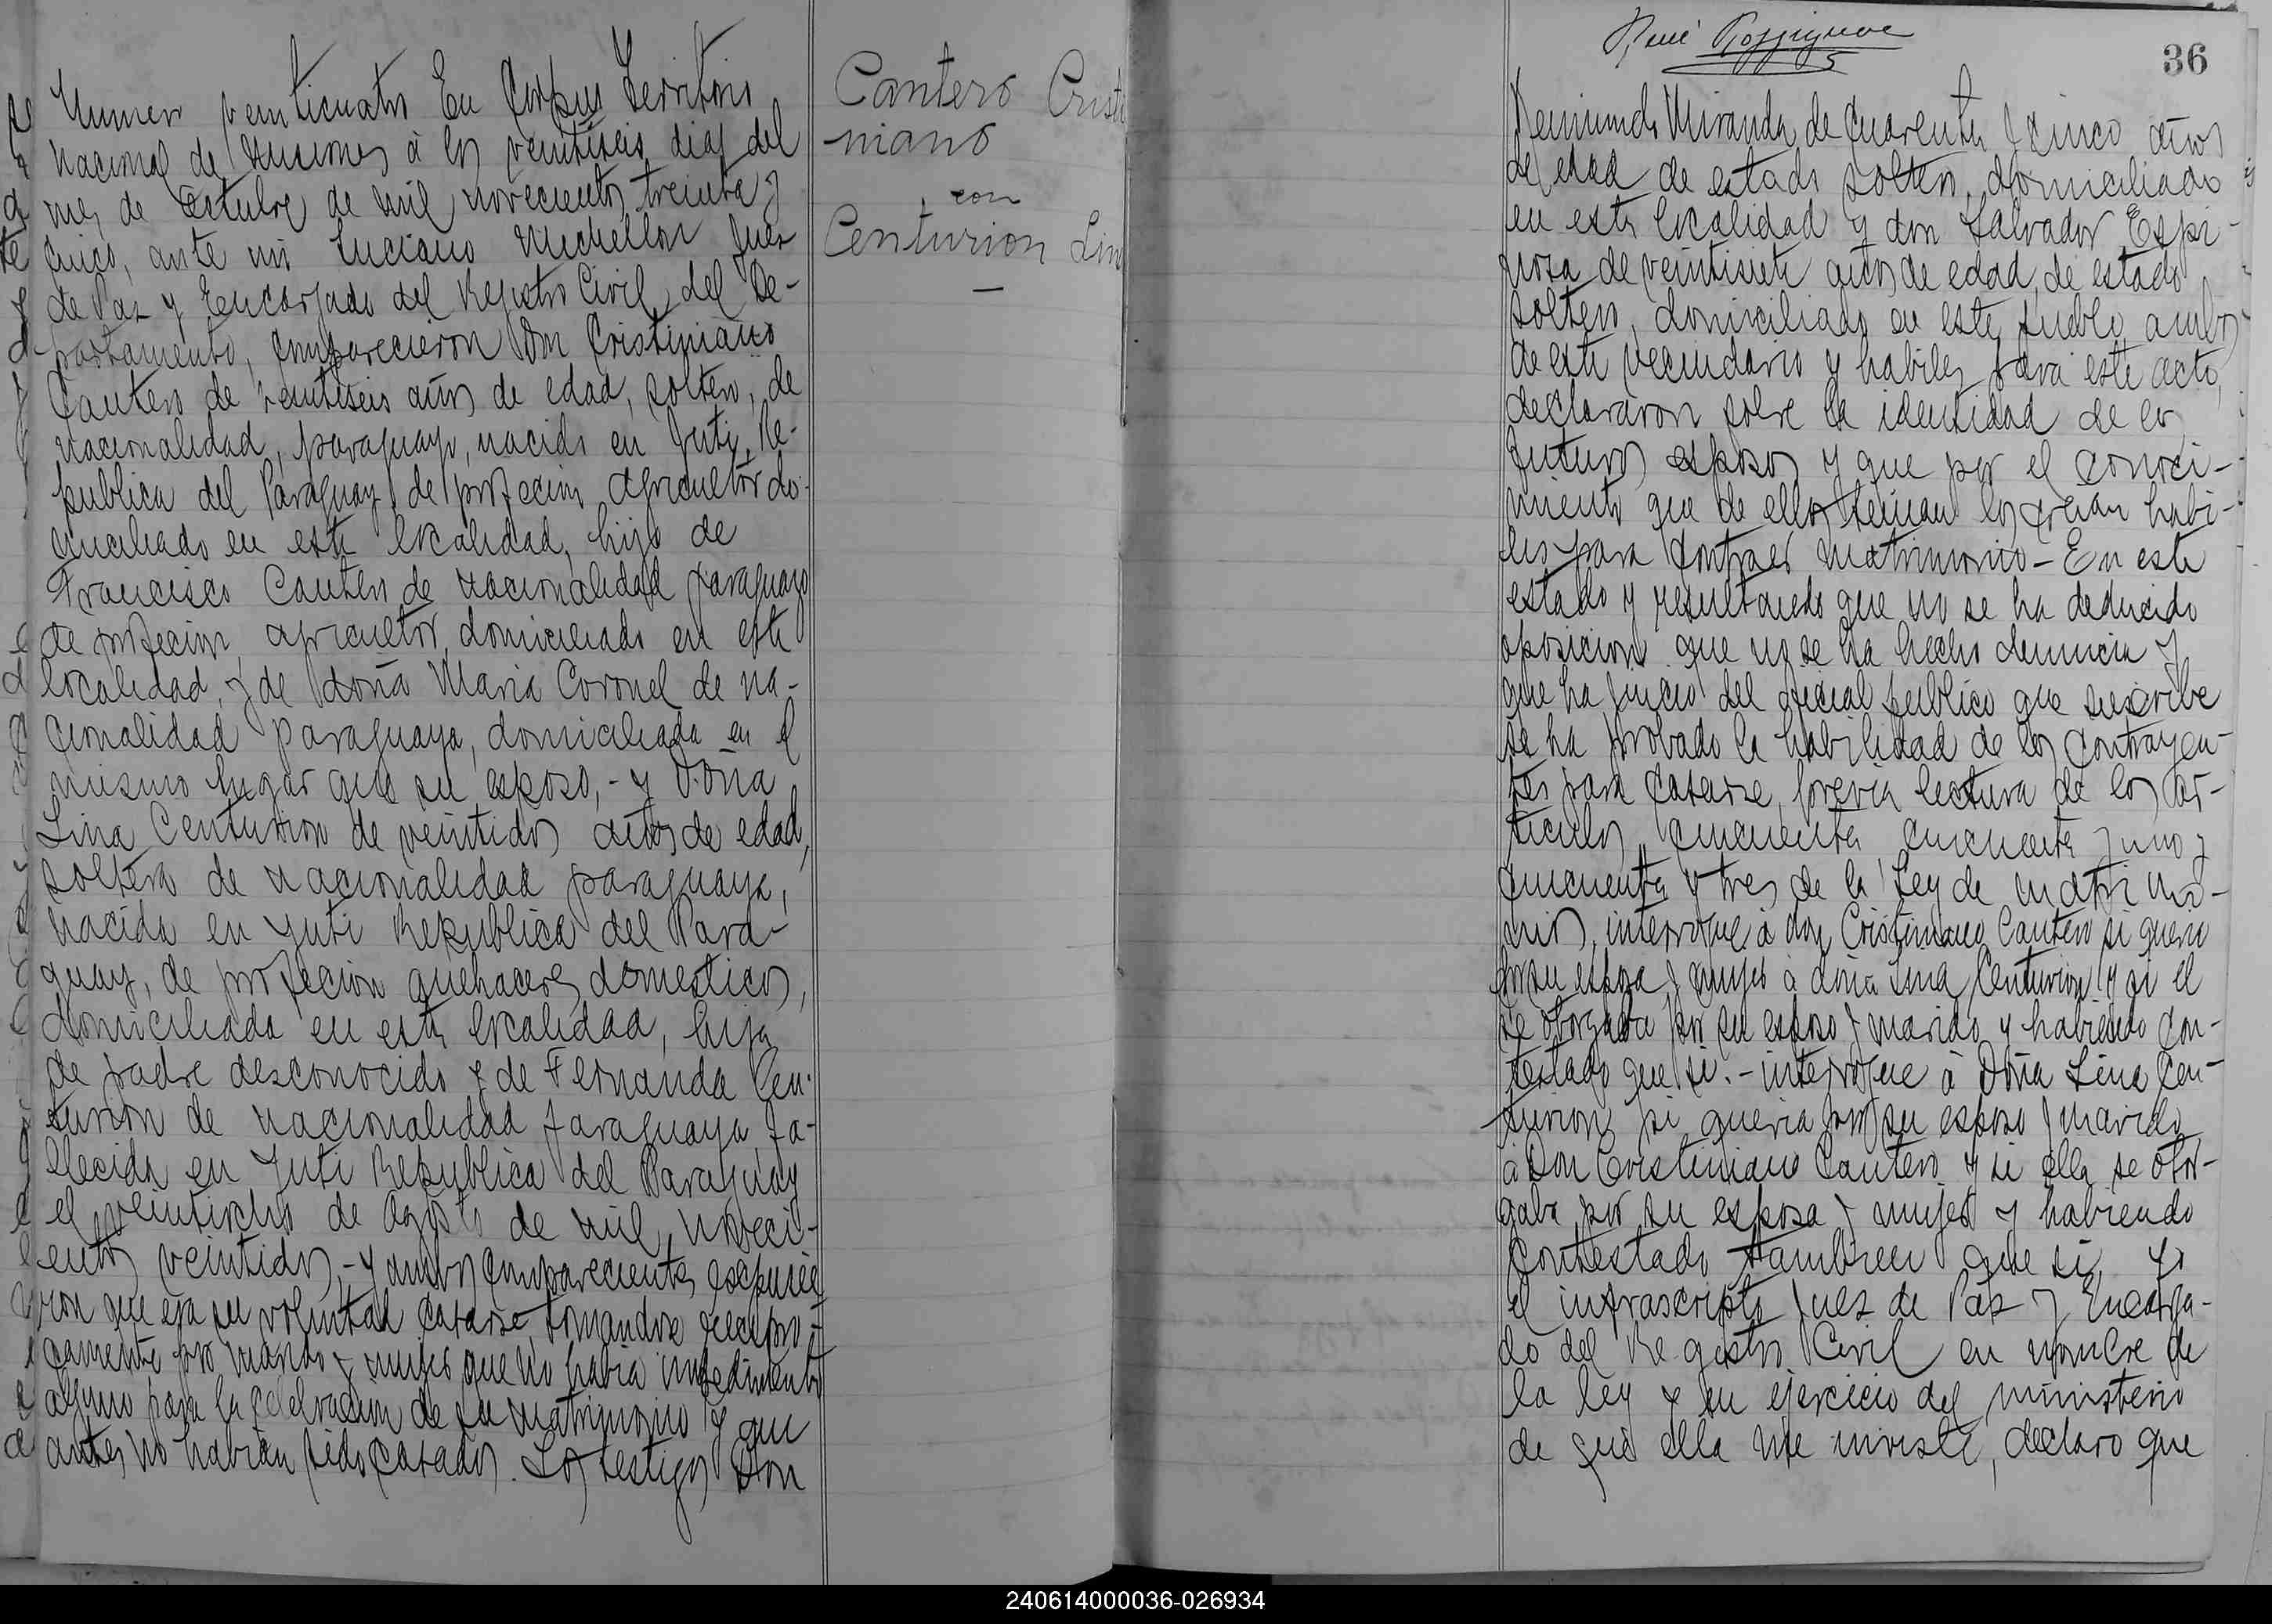 Numero veinticuatro En Corpus Territorio
Nacional de Misiones à los veintiseis dias del
mes de Octubre de mil novecientos treinta y
cinco, ante mi Luciano Michellon Juez
de Paz y Encargado del Registro Civil del De-
partamento, comparecieron Don Cristiniano
Cantero de veintiseis años de edad, soltero, de
nacionalidad, paraguayo, nacido en Juti, Re-
publica del Paraguay, de profecion agricultor do-
miciliado en esta localidad, hijo de
Francisco Cantero de nacionalidad paraguayo
de profecion, agricultor, domiciliado en esta
localidad, y de doña Maria Coronel de na-
cionalidad paraguaya, domiciliada en el
mismo lugar que su esposo,- y Doña
Lina Centurion de veintidos años de edad,
soltera de nacionalidad paraguaya,
nacida en Yuti Republica del Para-
guay, de profecion quehaceres domesticos,
domiciliada en esta localidad, hija
de padre desconocido y de Fernanda Cen-
turion de nacionalidad paraguaya, fa-
llecida en Yuti Republica del Paraguay
el veintiocho de Agosto de mil noveci-
entos veintidos,- y ambos comparecientes espusie
ron que era su voluntad casarse, tomandose recipro-
camente por marido y mujer que no habia impedimento
alguno para la celebracion de su matrimonio y que
antes no habian sido casados. Los testigos Don
Cantero Cristi
niano
con
Centurion Lin
—
René Rossignoe
36
Reimundo Miranda de cuarenta y cinco años
de edad de estado soltero, domiciliado
en esta localidad y don Salvador Espi-
nosa de veintisiete años de edad, de estado
soltero, domiciliado en este pueblo ambos
de este vecindario y habiles para este acto,
declararon sobre la identidad de los
futuros esposos y que por el conoci-
miento que de ellos tenian los creian habi-
les para contraer matrimonio - En este
estado y resultando que no se ha deducido
oposicion que no se ha hecho denuncia y
que ha juicio del oficial publico que suscribe
se ha probado la habilidad de los contrayen-
tes para casarse, previa lectura de los ar-
ticulos cincuenta cincuenta y uno y
cincuenta y tres de la Ley de matrimo-
nio, interrogue à don Cristiniano Cantero si queria
por su esposa y mujer à doña Lina Centurion y si el
se otorgaba por su esposo y marido y habiendo con-
testado que si.- interrogue à Doña Lina Cen-
turion, si queria por su esposo y marido
à Don Cristiniano Cantero y si ella se otor-
gaba por su esposa y mujer y habiendo
contestado tambien que si, yo
el infrascripto Juez de Paz y Encarga-
do del Registro Civil en nombre de
la ley y en ejercicio del ministerio
de que ella me inviste, declaro que
240614000036-026934